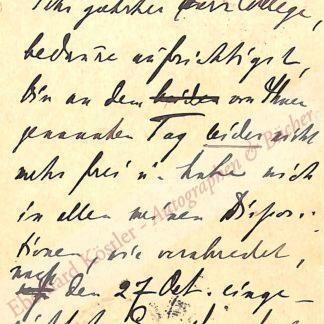 Sehr geehrter Herr College,
bedaure aufrichtigst,
bin an dem beiden von Ihnen
genannten Tag leider nicht
mehr frei u. habe mich
in allen meinen Dispo-
tionen, wie verabredet,
nach den 27 Oct. einge-
Eberhard Köstler - Autographen & Bücher